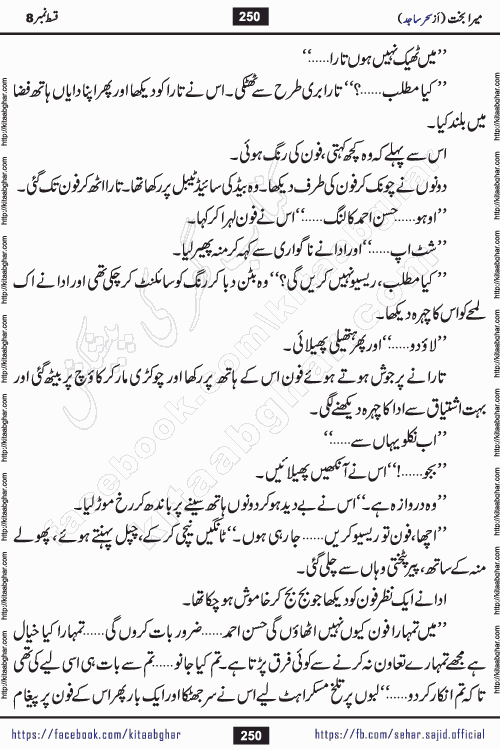 میرا بخت (از سحر ساجد) 250 قسط نمبر 8
”میں ٹھیک نہیں ہوں تارا......“
”کیا مطلب......؟“ تارا بری طرح سے ٹھٹکی۔ اس نے تارا کو دیکھا اور پھر اپنا دایاں ہاتھ فضا
میں بلند کیا۔
اس سے پہلے کہ وہ کچھ کہتی، فون کی رنگ ہوئی۔
دونوں نے چونک کر فون کی طرف دیکھا۔ وہ بیڈ کی سائیڈ ٹیبل پر رکھا تھا۔ تارا اٹھ کر فون تک گئی۔
”اوہو......حسن احمد کالنگ......“ اس نے فون لہرا کر کہا۔
”شٹ اپ......“ اور ادا نے ناگواری سے کہہ کر منہ پھیر لیا۔
”کیا مطلب، ریسیو نہیں کریں گی؟“ وہ بٹن دبا کر رنگ کو سائلنٹ کر چکی تھی اور ادا نے اک
لمحے کو اس کا چہرہ دیکھا۔
”لاؤ دو......“ اور پھر ہتھیلی پھیلائی۔
تارا نے پرجوش ہوتے ہوئے فون اس کے ہاتھ پر رکھا اور چوکڑی مار کر کاؤچ پر بیٹھ گئی اور
بہت اشتیاق سے ادا کا چہرہ دیکھنے لگی۔
”اب نکلو یہاں سے......“
”بجو......!“ اس نے آنکھیں پھیلائیں۔
”وہ دروازہ ہے۔“ اس نے بے دید ہو کر دونوں ہاتھ سینے پر باندھ کر رخ موڑ لیا۔
”اچھا، فون تو ریسیو کریں...... جا رہی ہوں۔“ ٹانگیں نیچی کر کے، چپل پہنتے ہوئے، پھولے
منہ کے ساتھ، پیر پٹختی وہاں سے چلی گئی۔
ادا نے ایک نظر فون کو دیکھا جو بج بج کر خاموش ہو چکا تھا۔
”میں تمہارا فون کیوں نہیں اٹھاؤں گی حسن احمد......ضرور بات کروں گی......تمہارا کیا خیال
ہے مجھے تمہارے تعاون نہ کرنے سے کوئی فرق پڑتا ہے۔ تم کیا جانو......تم سے بات ہی اسی لیے کی تھی
تاکہ تم انکار کر دو......“ لبوں پر تلخ مسکراہٹ لیے اس نے سر جھٹکا اور ایک بار پھر اس کے فون پر پیغام
https://facebook.com/kitaabghar 250 https://fb.com/sehar.sajid.official
http://kitaabghar.com
facebook.com/kitaabghar
kitaabghar.com